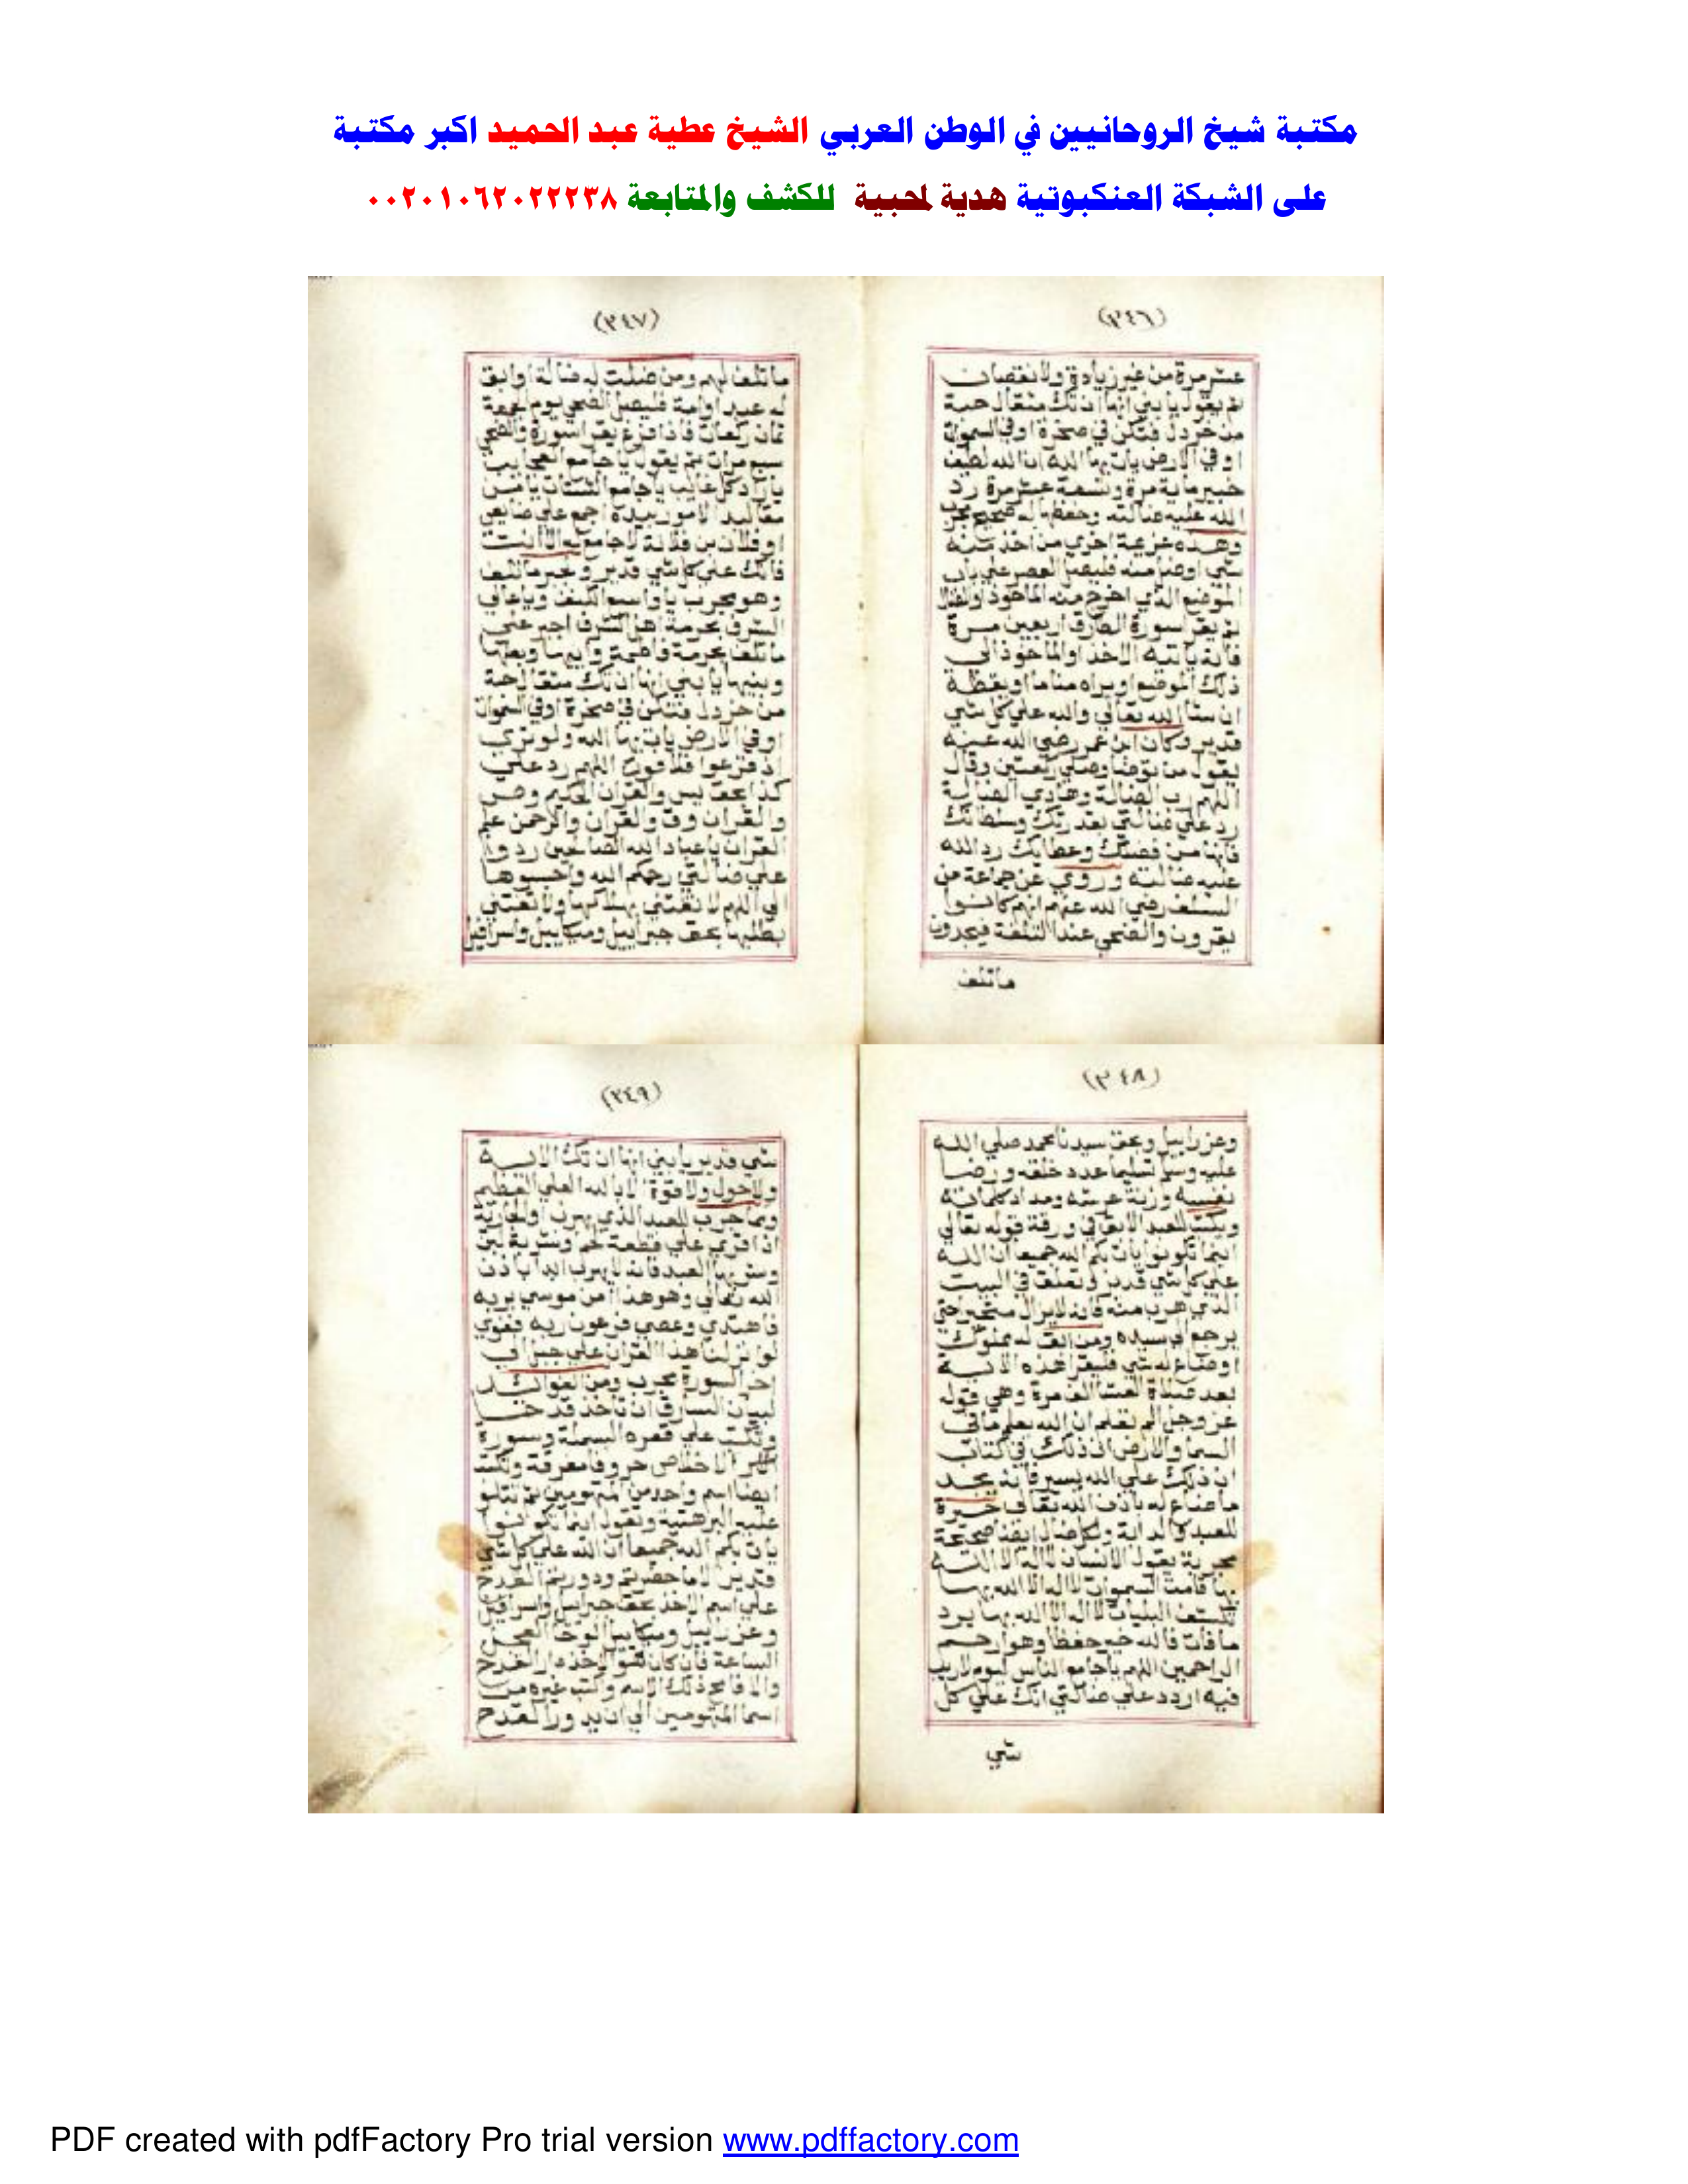 مكتبة شيخ الروحانيين في الوطن العربي الشيخ عطية عبد الحميد اكبر مكتبة
على الشبكة العنكبوتية هدية لمحبية للكشف والمتابعة ٠٠٢٠١٠٦٢٠٢٢٢٣٨
(٣٤٦)
عشر مرة من غير زيادة ولا نقصان
ثم يقول يا بني انها ان تك مثقال حبة
من خردل فتكن في صخرة او في السموات
او في الارض يات بها الله ان الله لطيف
خبير ماية مرة وتسعة عشر مرة رد
الله عليه ضالته وحفظها له صحيح مجرب
وهذه عزيمة اخري من اخذ منه
شي اوضل منه فليصل العصر علي باب
الموضع الذي اخرج منه الماخوذ
ثم يقرا سورة الطارق اربعين مرة
فانه ياتيه الاخذ والماخوذ الي
ذلك الموضع او يراه مناما او يقظة
ان شا الله تعالي والله علي كل شي
قدير وكان ابن عمر رضي الله عنه
يقول من توضا وصلي ركعتين وقال
اللهم رب الضالة وهادي الضالة
رد علي ضالتي بقدرتك وسلطانك
فانها من فضلك وعطايك رد الله
عليه ضالته وروي عن جماعة من
السلف رضي الله عنهم انهم كانوا
يقرون والضحي عند التلفة فيجدون
ماتلف
(٣٤٧)
ماتلف لهم ومن ضلت له ضالة او ابق
له عبد او امة فليصل الضحي يوم الجمعة
ثمان ركعات فاذا فرغ يقرا سورة والضحي
سبع مرات ثم يقول يا جامع العجايب
يا راد كل غايب يا جامع الشتات يا من
مقاليد الامور بيده اجمع علي ضايعي
او فلان بن فلانة لا جامع له الا انت
فانك علي كل شي قدير و
وهو مجرب يا واسع اللطف ويا عالي
الشرف بحرمة اهل الشرف اجبر علي
ماتلف بحرمة فاطمة وابيها وبعلها
وبنيها يا بني انها ان تك مثقال حبة
من خردل فتكن في صخرة او في السموات
او في الارض يات بها الله ولو تري
اذ فزعوا فلا فوت اللهم رد علي
كذا بحق يس والقران الحكيم وص
والقران وق والقران والرحمن علم
القران يا عباد الله الصالحين ردوا
علي ضالتي رحمكم الله واحبسوها
لي اللهم لا تفتني بهلاكها ولا تعبني
بطلبها بحق جبراييل وميكاييل واسرافيل
(٣٤٨)
وعزراييل وبحق سيدنا محمد صلي الله
عليه وسلم تسليما عدد خلقه ورضا
نفسه وزنة عرشه ومداد كلماته
ويكتب للعبد الابق في ورقة قوله تعالي
اينما تكونوا يات بكم الله جميعا ان الله
علي كل شي قدير وتعلق في البيت
الذي هرب منه فانه لايزال متحير حتي
يرجع الي سيده ومن ابق له مملوك
او ضاع له شي فليقرا هذه الاية
بعد صلاة العشا الف مرة وهي قوله
عز وجل الم تعلم ان الله يعلم ما في
السما والارض ان ذلك في كتاب
ان ذلك علي الله يسير فانه يجد
ما ضاع له باذن الله تعالي
للعبد والدابة ولكل ضال ايضا صحيحة
مجربة يقول الانسان لا اله الا الله
بها قامت السموات لا اله الا الله بها
تكشف البليات لا اله الا الله بها يرد
ما فات فالله خير حفظا وهو ارحم
الراحمين اللهم يا جامع الناس ليوم لا ريب
فيه اردد علي ضالتي انك علي كل
شي
(٣٤٩)
شي قدير يا بني انها ان تك الاية
ولا حول ولا قوة الا بالله العلي العظيم
ومما جرب للعبد الذي يهرب او الجارية
اذا قري علي قطعة
العبد فانه لا يهرب ابدا باذن
الله تعالي وهو هذا امن موسي بربه
فاهتدي وعصي فرعون ربه فغوي
لو انزلنا هذا القران علي جبل الي
اخر السورة مجرب ومن الفوائد
لبيان السارق ان تاخذ قدحا
وتكتب علي قعره البسملة وسورة
الاخلاص حروفا مفرقة وتكتب
ايضا اسم واحد من المتهومين ثم تتلو
عليه البرهتية وتقول اينما تكونوا
يات بكم الله جميعا ان الله علي كل شي
قدير الا ما حضرتم ودورتم القدح
علي اسم الاخذ بحق جبراييل واسرافيل
وعزراييل وميكاييل الوحا العجل
الساعة فان كان هو الاخذ دار القدح
والا فامح ذلك الاسم واكتب غيره من
اسما المتهومين الي ان يدور القدح
PDF created with pdfFactory Pro trial version www.pdffactory.com